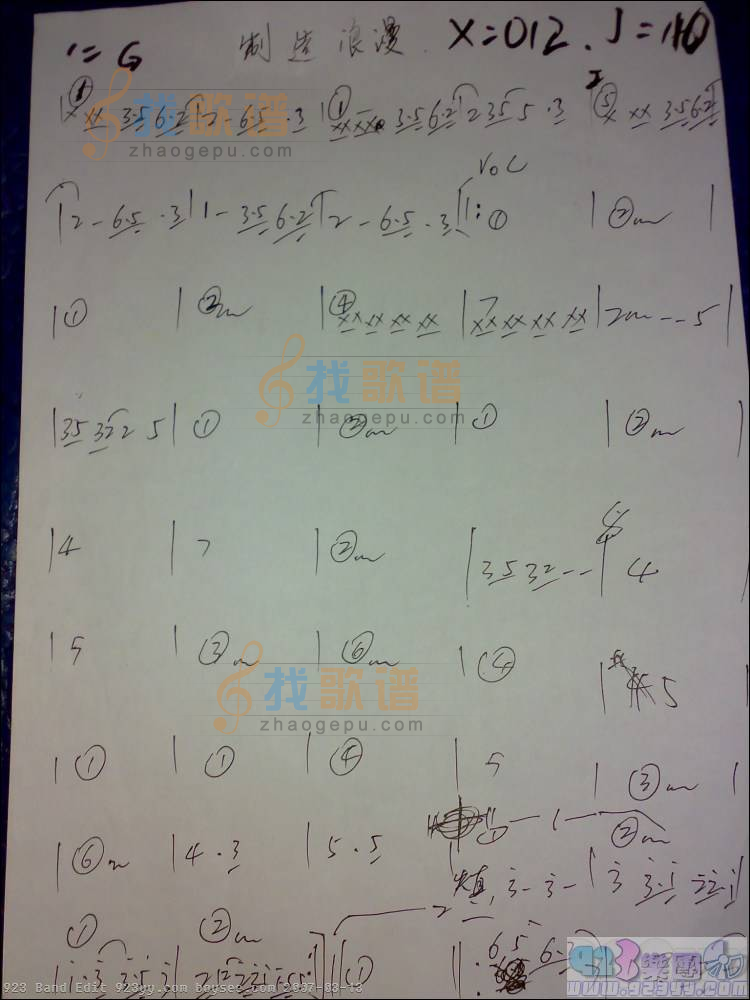 1=G 制造浪漫. X=012. J=110
| ① x xx 3·5 6·2 | 2 - 6·5 ·3 | ① xx xx 3·5 6·2 | 2 35 5 ·3 | ⑤ x xx 3·5 6·2 |
找歌谱
zhaogepu.com
VOC
| 2 - 6·5 ·3 | 1 - 3·5 6·2 | 2 - 6·5 ·3 ||: ① | ②m |
| ① | ②m | ④ xx xx xx xx | 7 xx xx xx xx | 2m -- 5 |
找歌谱
zhaogepu.com
| 35 322 5 | ① | ②m | ① | ②m |
| 4 | 7 | ②m | 35 32 -- | 4
| 5 | ③m | ⑥m | ④ | 5
找歌谱
zhaogepu.com
| ① | ① | ④ | 5 | ③m |
| ⑥m | 4 · 3 | 5 · 5 | ① - 1 -
②m
3 - 3 - | 3 3·1
① ②m
|| ① ||: 6 5 6·
923 Band Edit 923yy.com boysee.com 2007-03-13
923樂團
www.923yy.com